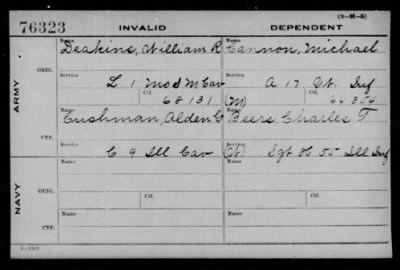 76323 INVALID DEPENDENT (3-H-5)
Name Name
Deakins, William R Cannon, Michael
ORIG. Service Service
L 1 Mo S M Cav A 17 Ct. Inf
Ctf. Ctf.
68131 (M) 64354
ARMY
Name Name
Cushman, Alden C Beers, Charles T
CTF. Service Service
C 9 Ill Cav Sgt 55 Ill Inf
NAVY
Name Name
ORIG. Service Ctf. Service Ctf.
Name Name
CTF.